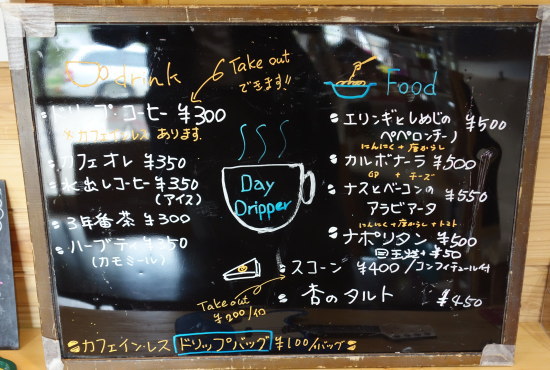 drink
Take out
できます!!
ドリップ・コーヒー ¥300
※カフェインレス あります
カフェオレ ¥350
水出しコーヒー ¥350
(アイス)
3年番茶 ¥300
ハーブティ ¥350
(カモミール)
Day
Dripper
Food
エリンギとしめじの
ペペロンチーノ ¥500
にんにく+唐からし
カルボナーラ ¥500
GP + チーズ
ナスとベーコンの
アラビアータ ¥550
にんにく+唐からし+トマト
ナポリタン ¥500
目玉焼+¥50
スコーン ¥400/コンフィチュール付
Take out
¥200/1コ
杏のタルト ¥450
カフェイン・レス ドリップバッグ ¥100/バッグ